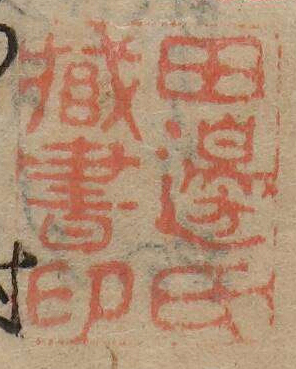 田邊氏
藏書印